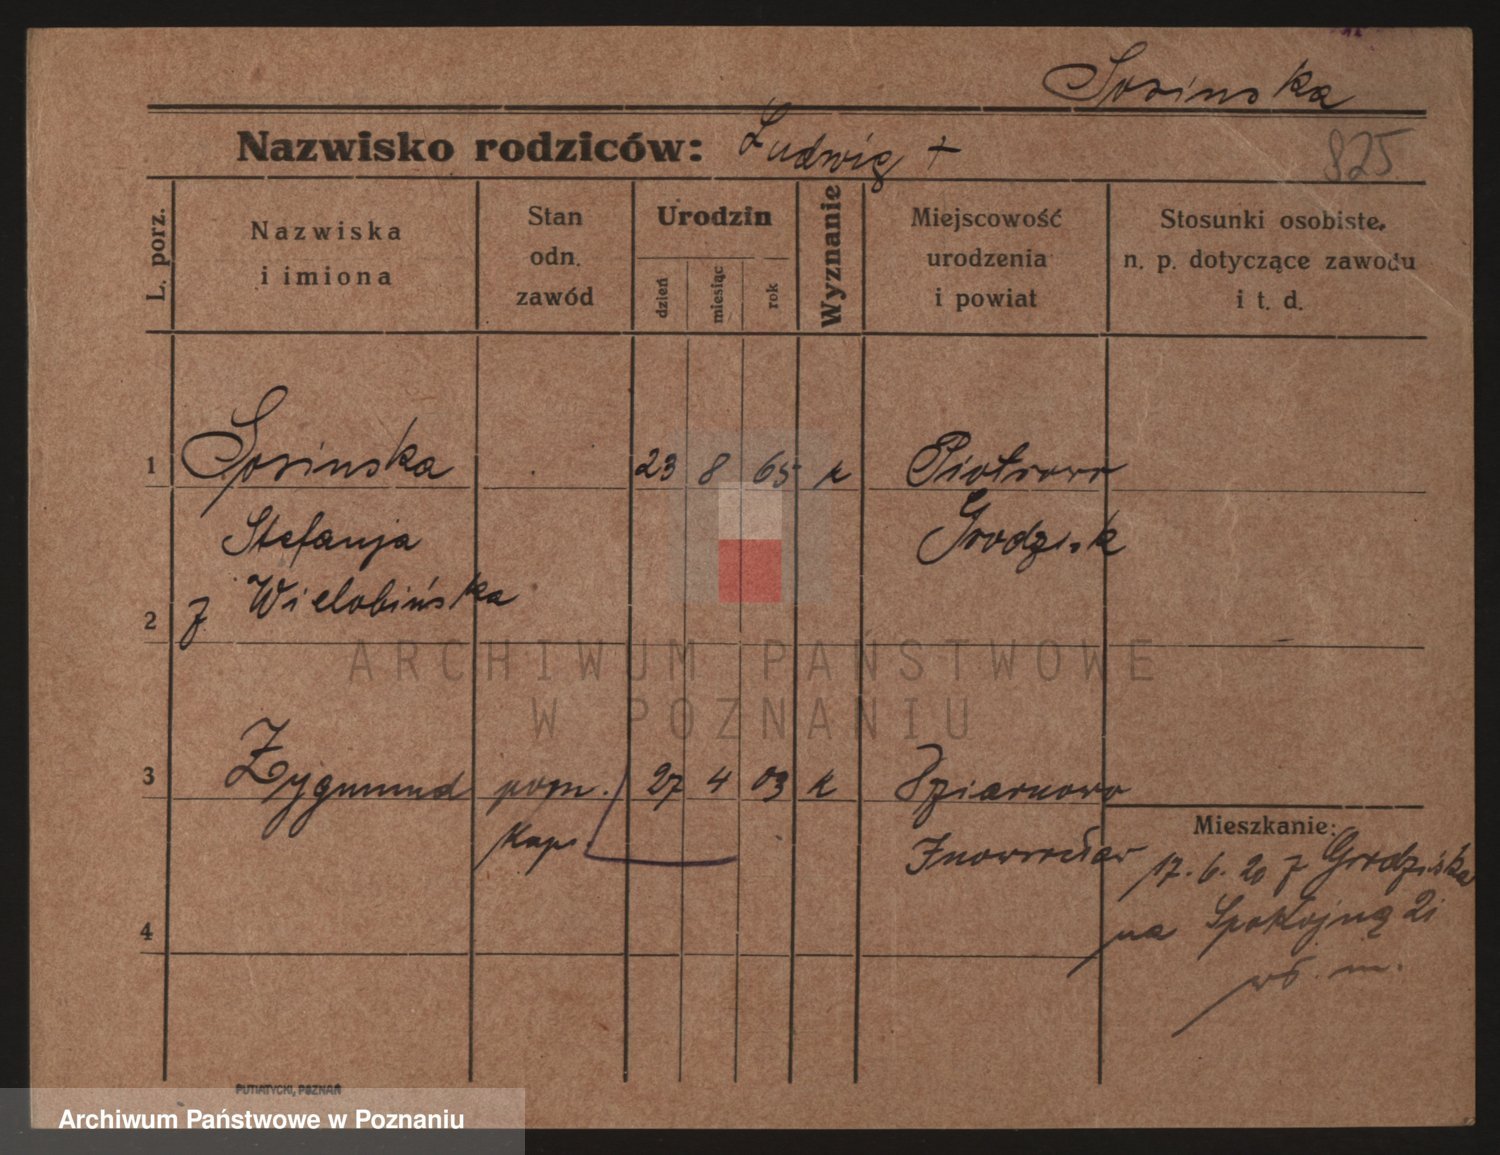 Sosinska
Nazwisko rodziców: Ludwig +
825
L. porz.
Nazwiska
i imiona
Stan
odn.
zawód
Urodzin
dzień
miesiąc
rok
Wyznanie
Miejscowość
urodzenia
i powiat
Stosunki osobiste.
n. p. dotyczące zawodu
i t. d.
1 Sosinska 23 8 65 k Piotrowo
Stefanja Grodzisk
2 z Wielobińska
ARCHIWUM PAŃSTWOWE
W POZNANIU
3 Zygmund pom. 27 4 03 k Dziarnowo
kup. Inowrocław
Mieszkanie:
17. 6. 20 z Grodziska
4 na Spokojną 21
wł. m.
PUTIATYCKI, POZNAŃ
Archiwum Państwowe w Poznaniu